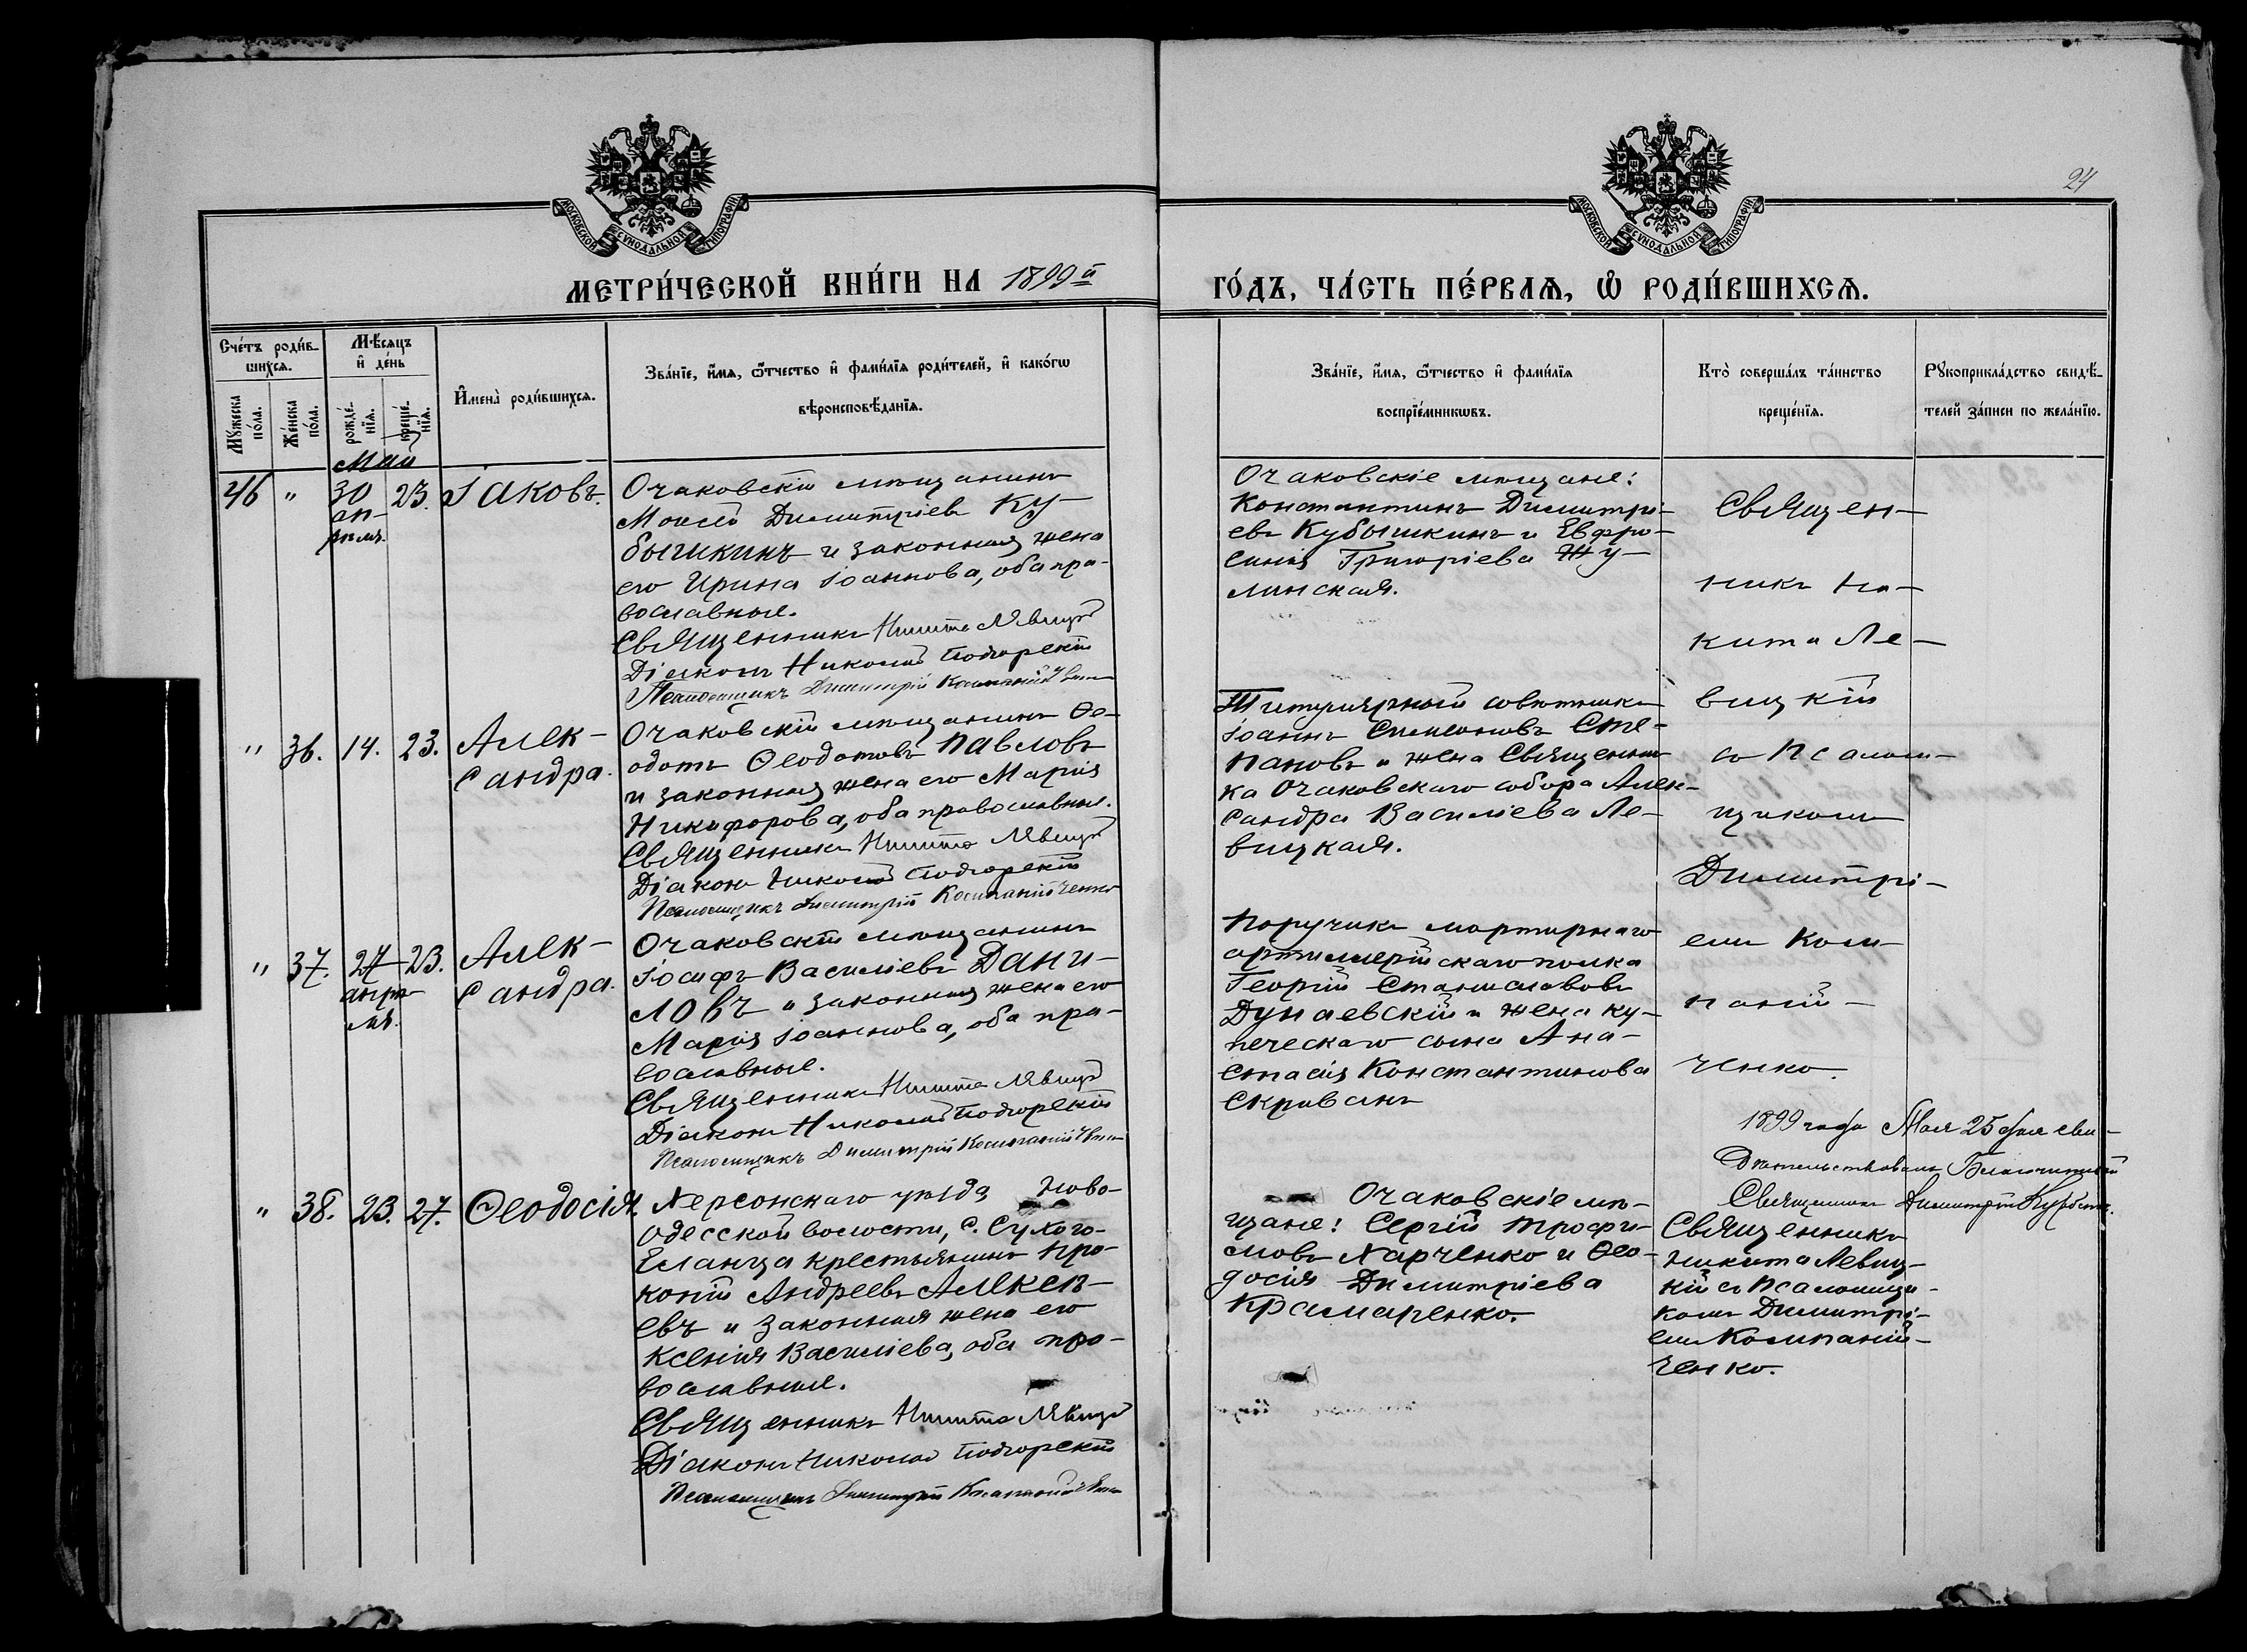 24
МОСКОВСКОЙ СѴНОДАЛЬНОЙ ТИПОГРАФІИ
МОСКОВСКОЙ СѴНОДАЛЬНОЙ ТИПОГРАФІИ
МЕТРИ́ЧЕСКОЙ КНИ́ГИ НА 1899й
ГО́ДЪ, ЧА́СТЬ ПЕ́РВАѦ, Ѡ҆ РОДИ́ВШИХСѦ.
Сче́тъ роди́в-
шихсѧ.
Мѣ́сѧцъ
и҆ де́нь
Мꙋ́жеска
по́ла.
Же́нска
по́ла.
рожде́-
нїѧ.
креще́-
нїѧ.
И҆мена̀ роди́вшихсѧ.
Зва́нїе, и҆́мѧ, ѻ҆́тчество и҆ фами́лїѧ роди́телей, и҆ како́гѡ
вѣроисповѣ́данїѧ.
Зва́нїе, и҆́мѧ, ѻ҆́тчество и҆ фами́лїѧ
воспрїе́мникѡвъ.
Кто̀ соверша́лъ та́инство
креще́нїѧ.
Рꙋкоприкла́дство свидѣ́-
телей за́писи по жела́нїю.
Май
46 " 30 23. Іаковъ.
ап-
рѣля.
Очаковскій мѣщанинъ
Моисей Димитріевъ Ку-
бышкинъ и законная жена
его Ирина Іоаннова, оба пра-
вославные.
Священникъ Никита Левицкій
Діаконъ Николай Подгорскій
Псаломщикъ Димитрій Компанійченко
Очаковскіе мѣщане:
Константинъ Димитрі-
евъ Кубышкинъ и Евфро-
синія Григоріева Жу-
линская.
Священ-
никъ Ни-
кита Ле-
вицкій
съ псалом-
щикомъ
Димитрі-
емъ Ком-
паній-
ченко.
" 36. 14. 23. Алек-
сандра.
Очаковскій мѣщанинъ Ѳе-
одотъ Ѳеодотовъ Павловъ
и законная жена его Марія
Никифорова, оба православные.
Священникъ Никита Левицкій
Діаконъ Николай Подгорскій
Псаломщикъ Димитрій Компанійченко
Титулярный совѣтникъ
Іоаннъ Симеоновъ Сте-
пановъ и жена Священни-
ка Очаковскаго собора Алек-
сандра Василіева Ле-
вицкая.
" 37. 27 23. Алек-
апрѣ- сандра.
ля.
Очаковскій мѣщанинъ
Іосифъ Василіевъ Дани-
ловъ и законная жена его
Марія Іоаннова, оба пра-
вославные.
Священникъ Никита Левицкій
Діаконъ Николай Подгорскій
Псаломщикъ Димитрій Компанійченко
Поручикъ мортирнаго
артиллерійскаго полка
Георгій Станиславовъ
Дунаевскій и жена ку-
печескаго сына Ана-
стасія Константинова
Скриванъ
1899 года Мая 25 дня сви-
дѣтельствовалъ Благочинный
Священникъ Димитрій
" 38. 23. 27. Ѳеодосія.
Херсонскаго уѣзда Ново-
одесской волости, с. Сухого-
Еланца крестьянинъ Про-
копій Андреевъ Алексѣ-
евъ и законная жена его
Ксенія Василіева, оба пра-
вославные.
Священникъ Никита Левицкій
Діаконъ Николай Подгорскій
Псаломщикъ Димитрій Компанійченко
Очаковскіе мѣ-
щане: Сергій Трофи-
мовъ Харченко и Ѳео-
досія Димитріева
Крамаренко.
Священникъ
Никита Левиц-
кій съ Псаломщи-
комъ Димитрі-
емъ Компаній-
ченко.